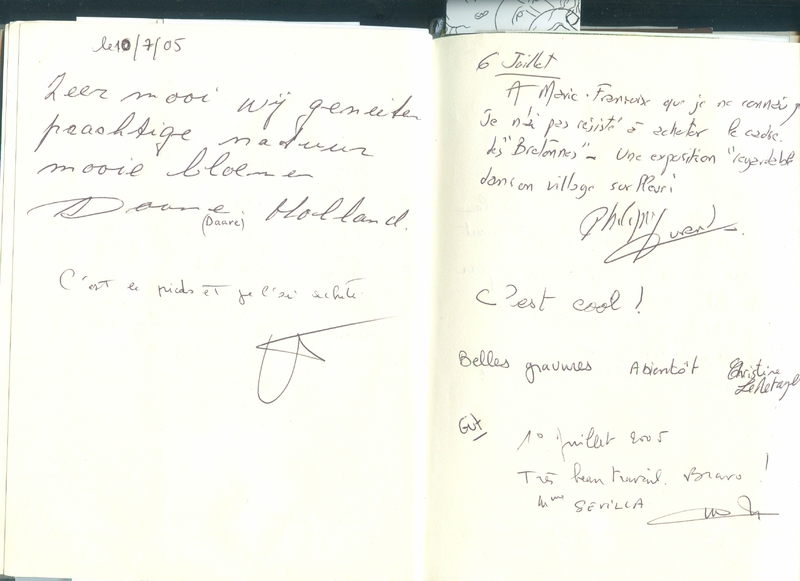 le 10/7/05
Zeer mooi wij genieten
prachtige natuur
mooie bloemen
Daare Holland.
(Daare)
C'est le pieds et je l'ai acheté.
6 Juillet
A Marie-Françoise que je ne connais
Je n'ai pas résisté à acheter le cadre
des "Bretonnes" - Une exposition "regardable"
dans un village surfleuri
Philippe
C'est cool !
Belles gravures A bientôt Christine
Gut
10 juillet 2005
Très beau travail. Bravo !
Mme SEVILLA